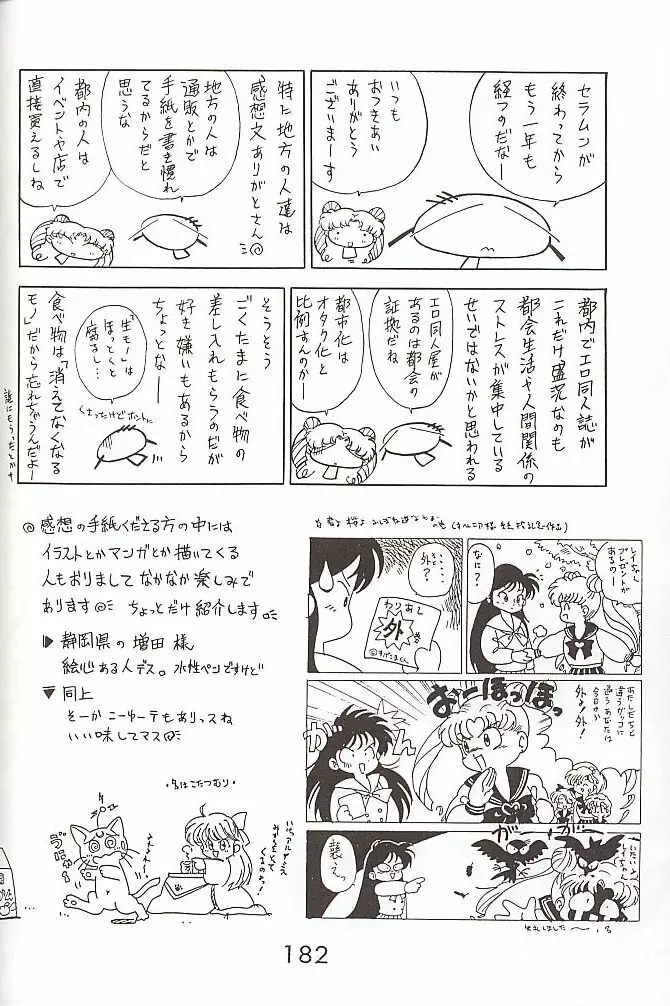 セラムンが
終わってから
もう一年も
経つのだなー
いつも
おつきあい
ありがとう
ございまーす
特に地方の人達は
感想文ありがとさん
地方の人は
通販とかで
手紙を書き慣れ
てるからだと
思うな
都内の人は
イベントや店で
直接買えるしね
都内でエロ同人誌が
これだけ盛況なのも
都会生活や人間関係の
ストレスが集中している
せいではないかと思われる
エロ同人屋が
あるのは都会の
証拠だね
都市化は
オタク化と
比例すんのかー
そうそう
ごくたまに食べ物の
差し入れもらうのだが
好き嫌いもあるから
ちょっとなー
「生モノ」は
ほっとくと
腐る…
くさったけどホントに
食べ物は「消えてなくなる
モノ」だから忘れちゃうんだよー
誰にもらったとかナ
◎感想の手紙くださる方の中には
イラストとかマンガとか描いてくる
人もおりまして なかなか楽しみで
あります ちょっとだけ紹介します。
▶静岡県の増田様
絵心ある人デス。水性ペンですけど
▼同上
そーか こーゆーテもありっスね
いい味してマス
レイちゃん
プレゼントが
あるのー
なに?
外…?
わりあて
外
あたしたちと
違うガッコに
違うあなたは
今日から
外よ外!
おーほっほっほっ
がーん
襲えっ
182